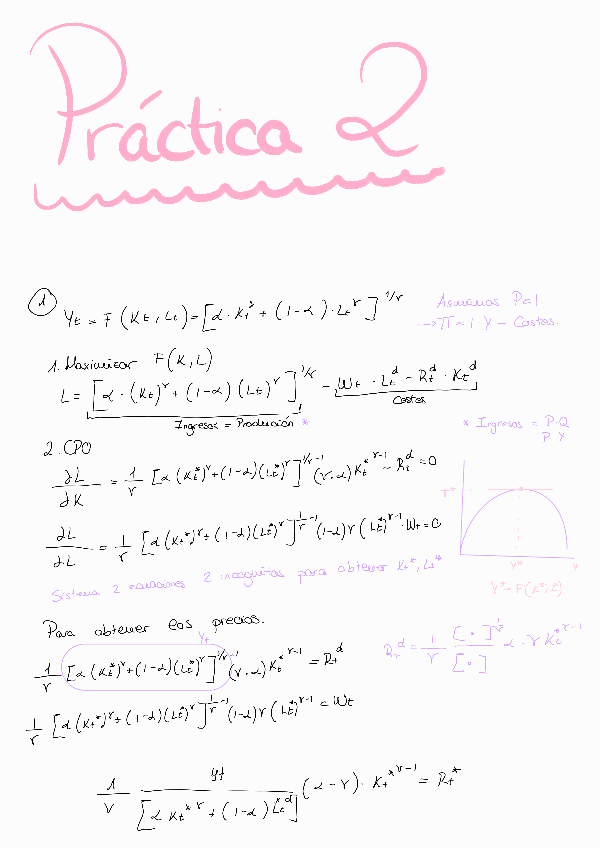 Práctica 2
① Yt = F (Kt, Lt) = [α · Kt^γ + (1-α) · Lt^γ]^1/γ
Asumimos P=1
→ Π = 1 · Y - Costes.
1. Maximizar F(K,L)
L = [α · (Kt)^γ + (1-α) (Lt)^γ]^1/γ - Wt · Lt^d - Rt^d · Kt^d
Ingresos = Producción *
Costes
* Ingresos = P·Q
P·Y
2. CPO
∂L/∂K = 1/γ [α (Kt*)^γ + (1-α)(Lt*)^γ]^1/γ-1 (γ·α) Kt*^γ-1 - Rt^d = 0
∂L/∂L = 1/γ [α (Kt*)^γ + (1-α)(Lt*)^γ]^1/γ-1 (1-α) γ (Lt*)^γ-1 · Wt = 0
π*
Y*
Y
Y* = F(K*, L*)
Sistema 2 ecuaciones 2 incognitas para obtener Kt*, Lt*
Para obtener los precios.
Yt
1/γ [α (Kt*)^γ + (1-α)(Lt*)^γ]^1/γ-1 (γ·α) Kt*^γ-1 = Rt^d
Rt^d = 1/γ [•]^1/γ / [•] α · γ Kt*^γ-1
1/γ [α (Kt*)^γ + (1-α)(Lt*)^γ]^1/γ-1 (1-α) γ (Lt*)^γ-1 = Wt
1/γ Yt / [α Kt*^γ + (1-α) Lt^d] (α - γ) · Kt*^γ-1 = Rt*